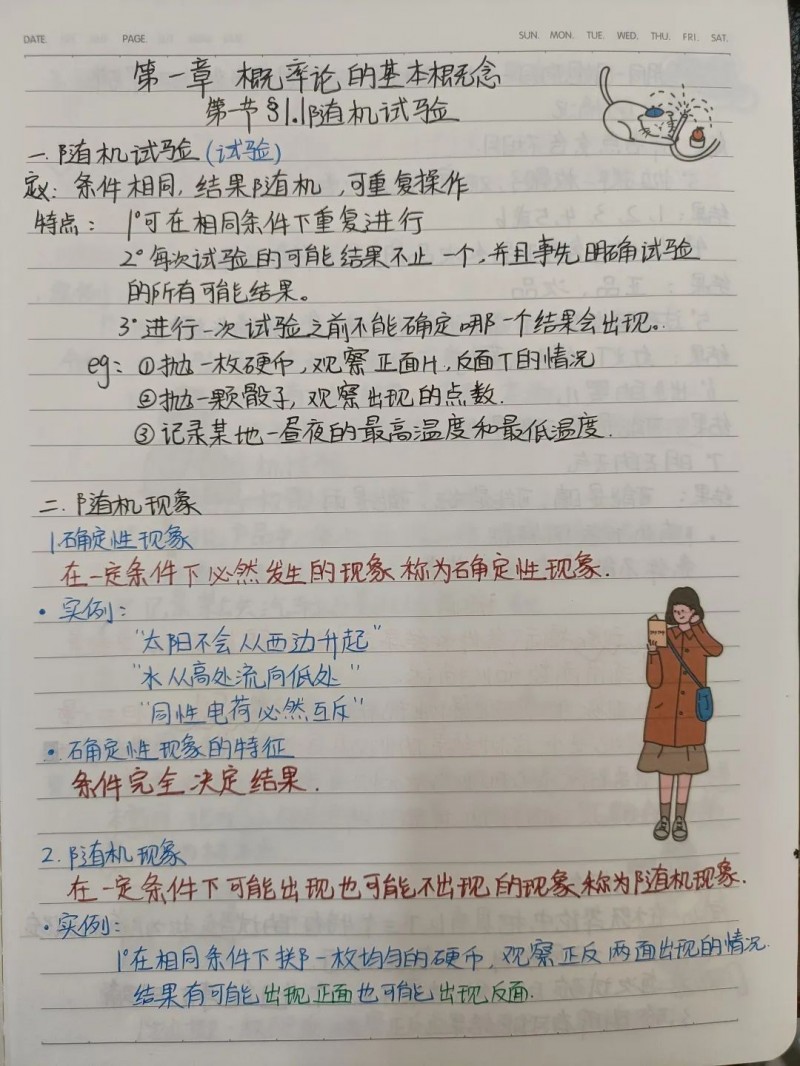 DATE. PAGE. SUN. MON. TUE. WED. THU. FRI. SAT.
第一章 概率论的基本概念
第一节 §1.1随机试验
一.随机试验(试验)
定义: 条件相同, 结果随机, 可重复操作
特点: 1°可在相同条件下重复进行
2°每次试验的可能结果不止一个,并且事先明确试验
的所有可能结果。
3°进行一次试验之前不能确定哪一个结果会出现。
eg: ①抛一枚硬币,观察正面H,反面T的情况
②抛一颗骰子,观察出现的点数.
③记录某地一昼夜的最高温度和最低温度.
二.随机现象
1.确定性现象
在一定条件下必然发生的现象称为确定性现象.
•实例:
"太阳不会从西边升起"
"水从高处流向低处"
"同性电荷必然互斥"
•确定性现象的特征
条件完全决定结果.
2.随机现象
在一定条件下可能出现也可能不出现的现象称为随机现象.
•实例:
1°在相同条件下掷一枚均匀的硬币,观察正反两面出现的情况.
结果有可能出现正面也可能出现反面.